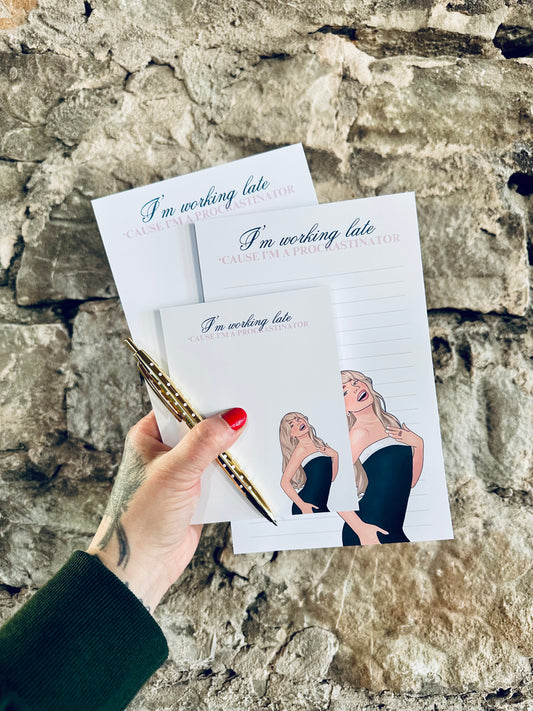 I'm working late
'CAUSE I'M A PROCRASTINATOR
I'm working late
'CAUSE I'M A PROCRASTINATOR
I'm working late
'CAUSE I'M A PROCRASTINATOR